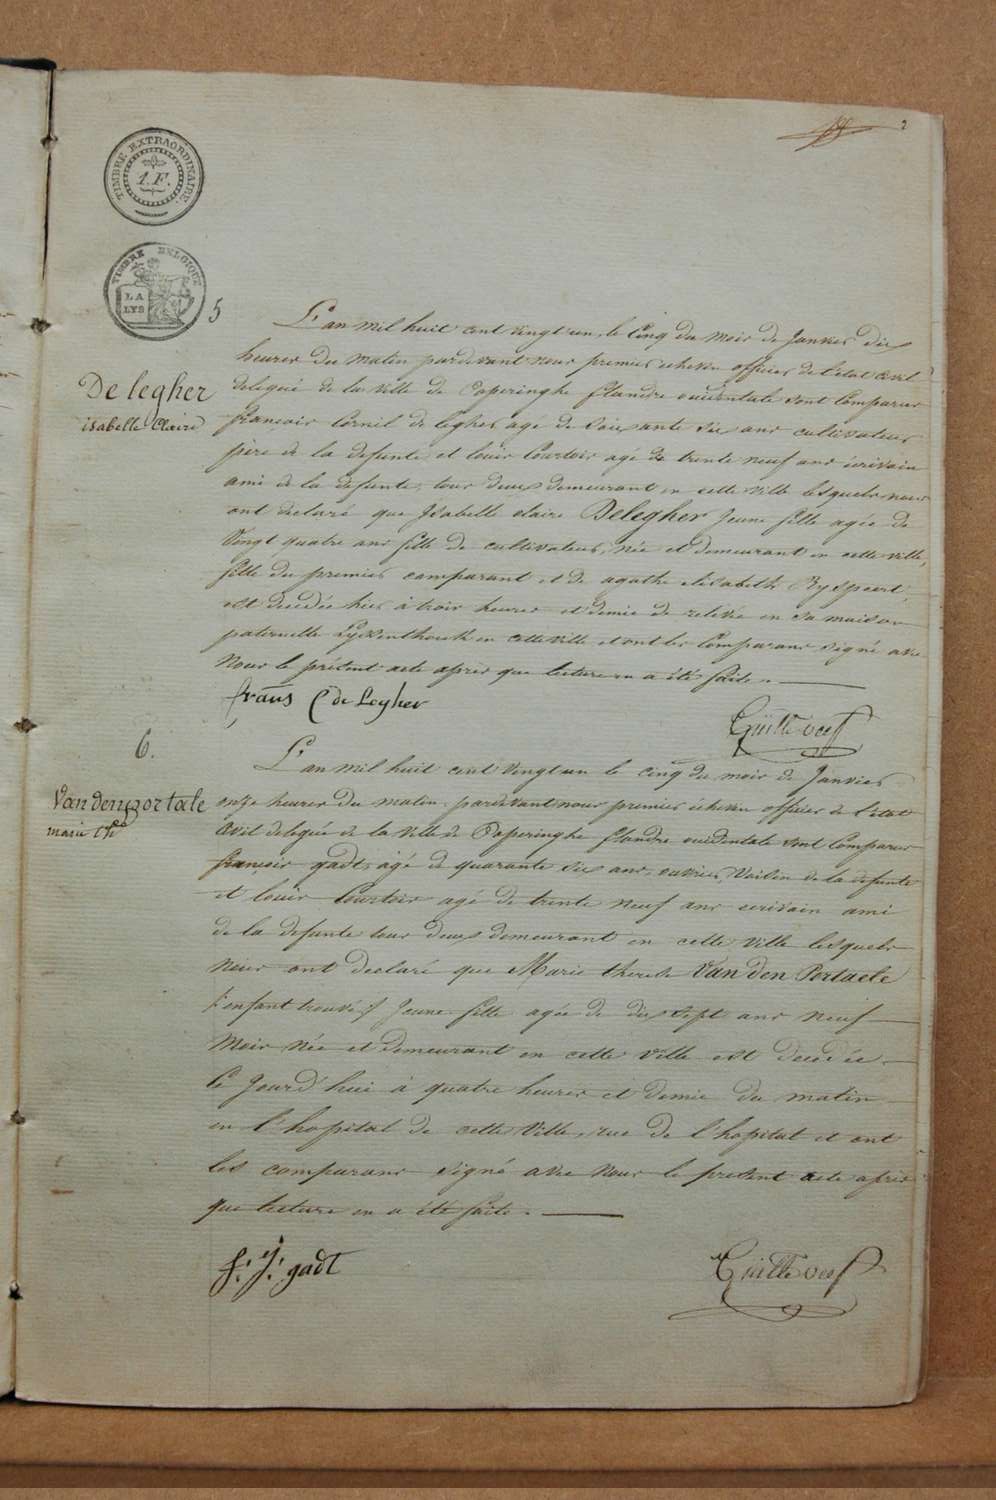 2
TIMBRE EXTRAORDINAIRE.
1.F.
TIMBRE BELGIQUE
LA
LYS
5
De legher
isabelle Claire
L'an mil huit cent vingt un, le Cinq du mois de Janvier dix
heures du matin pardevant nous premier echevin officier de l'etat Civil
delegué de la ville de Poperinghe flandre occidentale sont Comparus
françois Cornil de legher agé de soixante six ans cultivateur
père de la defunte et louis Courtois agé de trente neuf ans écrivain
ami de la defunte, tous deux demeurant en cette ville lesquels nous
ont declaré que Isabelle claire Delegher Jeune fille agée de
Vingt quatre ans fille de cultivateur, née et demeurant en cette ville,
fille du premier comparant et de agathe elisabeth Ryspeert,
est decedée hier à trois heures et demie de relevée en sa maison
paternelle en cette ville et ont les Comparans signé avec
Nous le présent acte après que lecture en a été faite.
frans C de Legher
6.
Vandenzortale
marie the
L'an mil huit cent Vingt un le cinq du mois de Janvier
onze heures du matin, pardevant nous premier échevin officier de l'état
Civil deleguée de la Ville de Poperinghe flandre occidentale sont Comparus
françois gadt, agé de quarante six ans, ouvrier, Voisin de la defunte
et louis Courtois agé de trente neuf ans ecrivain ami
de la defunte tous deux demeurant en cette Ville lesquels
nous ont declaré que Marie therese Van den Portaele
enfant trouvé Jeune fille agée de dix sept ans neuf
Mois née et demeurant en cette Ville est decedée
Ce Jourd'hui à quatre heures et demie du matin
en l'hopital de cette Ville, rue de l'hopital et ont
les comparans signé avec Nous le present acte après
que lecture en a été faite.
f. J. gadt